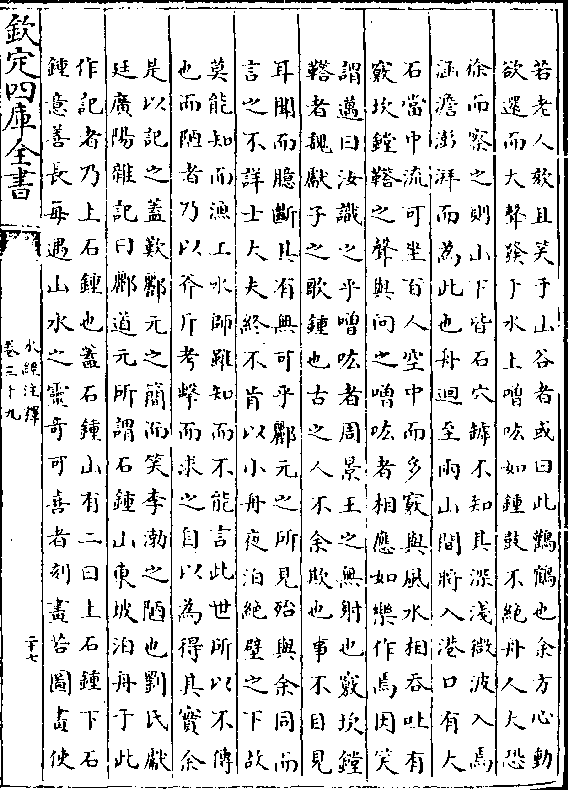 若老人欬且笑于山谷者或曰此鸛鶴也余方心動
欲還而大聲發于水上噌吰如鍾鼓不絶舟人大恐
徐而察之則山下皆石穴罅不知其深淺微波入焉
涵澹澎湃而為此也舟迴至兩山間將入港口有大
石當中流可坐百人空中而多竅與風水相吞吐有
竅坎鏜鞳之聲與向之噌吰者相應如樂作焉因笑
謂邁曰汝識之乎噌吰者周景王之無射也竅坎鏜
鞳者魏獻子之歌鍾也古之人不余欺也事不目見
耳聞而臆斷其有無可乎酈元之所見殆與余同而
言之不詳士大夫終不肯以小舟夜泊絶壁之下故
莫能知而漁工水師雖知而不能言此世所以不傳
也而陋者乃以斧斤考擊而求之自以為得其實余
是以記之蓋歎酈元之簡而笑李渤之陋也劉氏獻
廷廣陽雜記曰酈道元所謂石鍾山東坡泊舟于此
作記者乃上石鍾也蓋石鍾山有二曰上石鍾下石
鍾意善長每遇山水之靈奇可喜者刻畫若圖畫使
欽定四庫全書
水經注釋
卷三十九
二十七